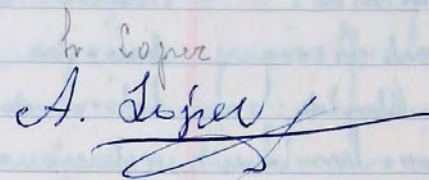 Lopez
A. Lopez